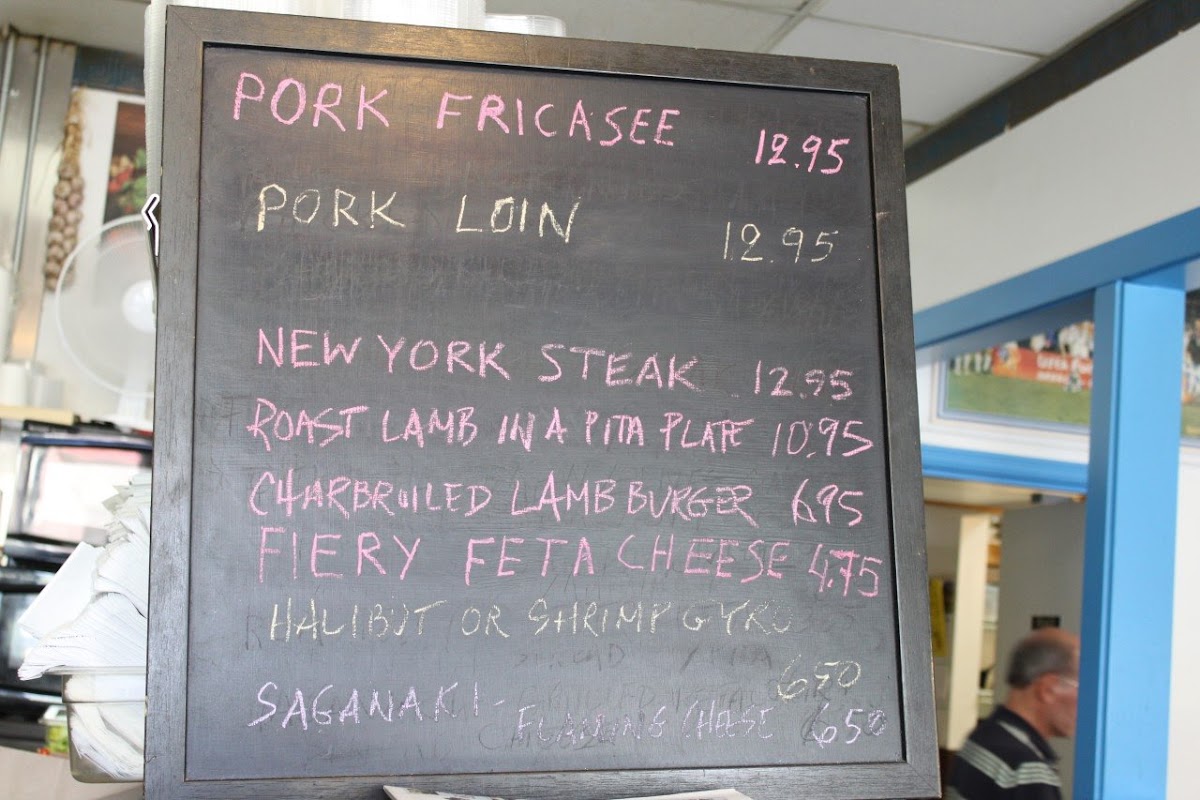 PORK FRICASEE 12.95
PORK LOIN 12.95
NEW YORK STEAK 12.95
ROAST LAMB IN A PITA PLATE 10.95
CHARBROILED LAMB BURGER 6.95
FIERY FETA CHEESE 4.75
HALIBUT OR SHRIMP GYRO
6.50
SAGANAKI - FLAMING CHEESE 6.50